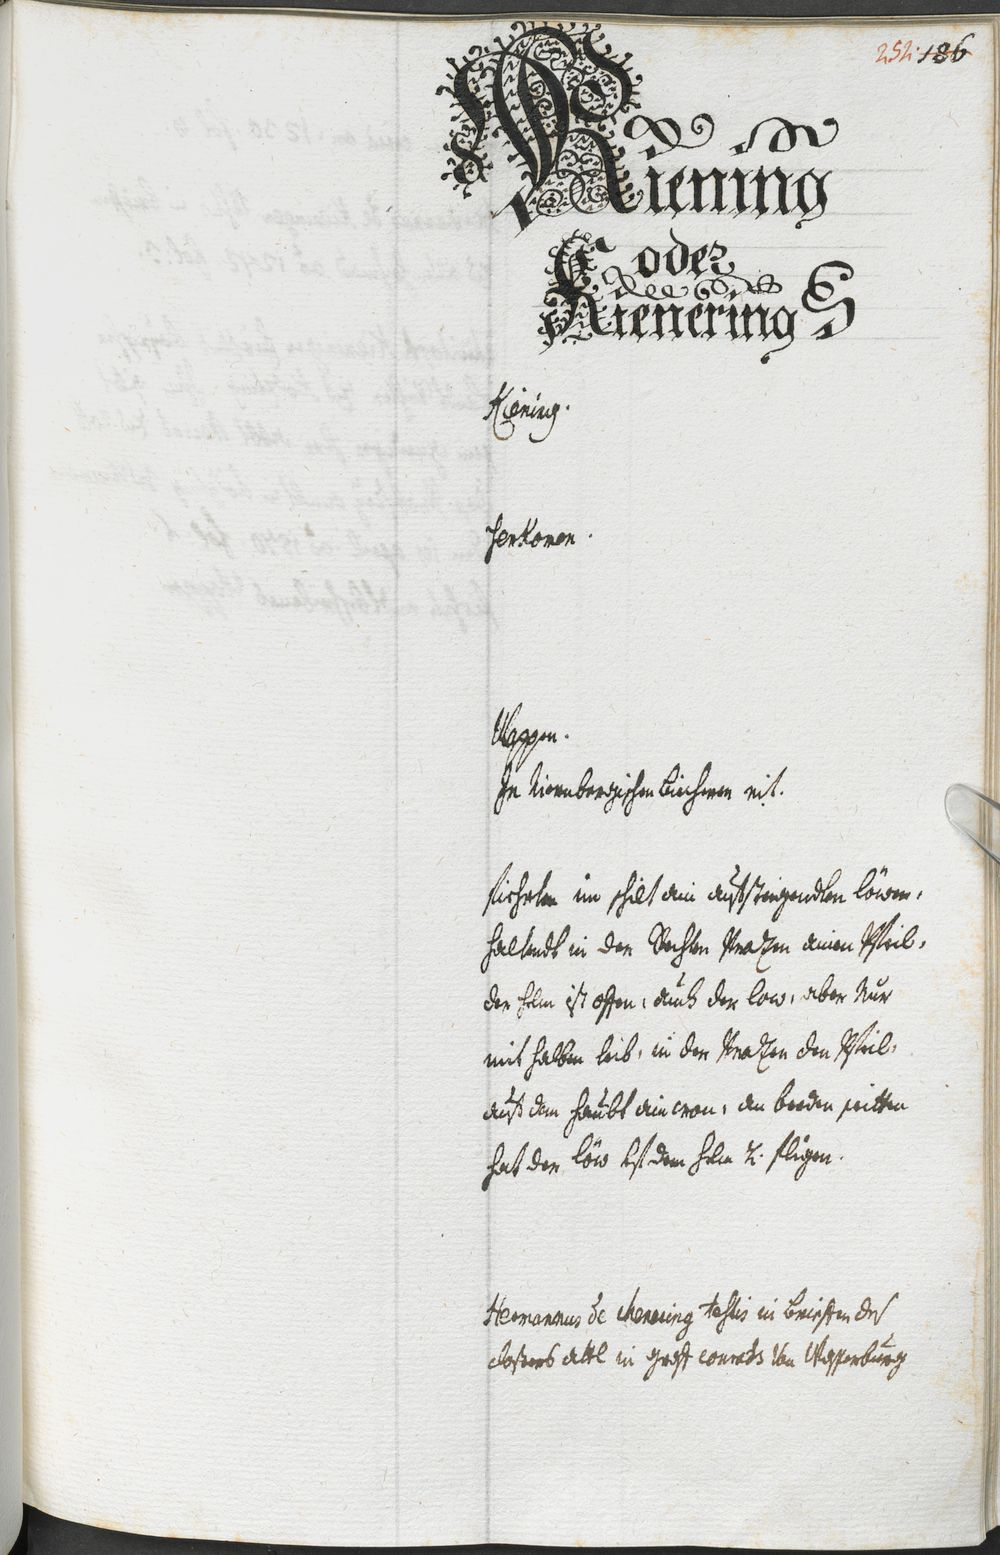 252. 186
Kiening
oder
Kienering
Kiening.
Herkomen.
Wappen.
In Niernbergischen Buechern nit.
fierhten im schilt ain aufsteigendten löwen,
haltendt in der Rechten Prazen ainen Pfeil,
der helm ist offen, auch der low, aber Nur
mit halben leib, in der Prazen den Pfeil,
auf dem haubt ain cron, an beeden seitten
hat der löw auf dem helm 2. fligen.
Hermannus de Chenering testis in brieffen des
closters Attl in graf Conrads von Wasserburg